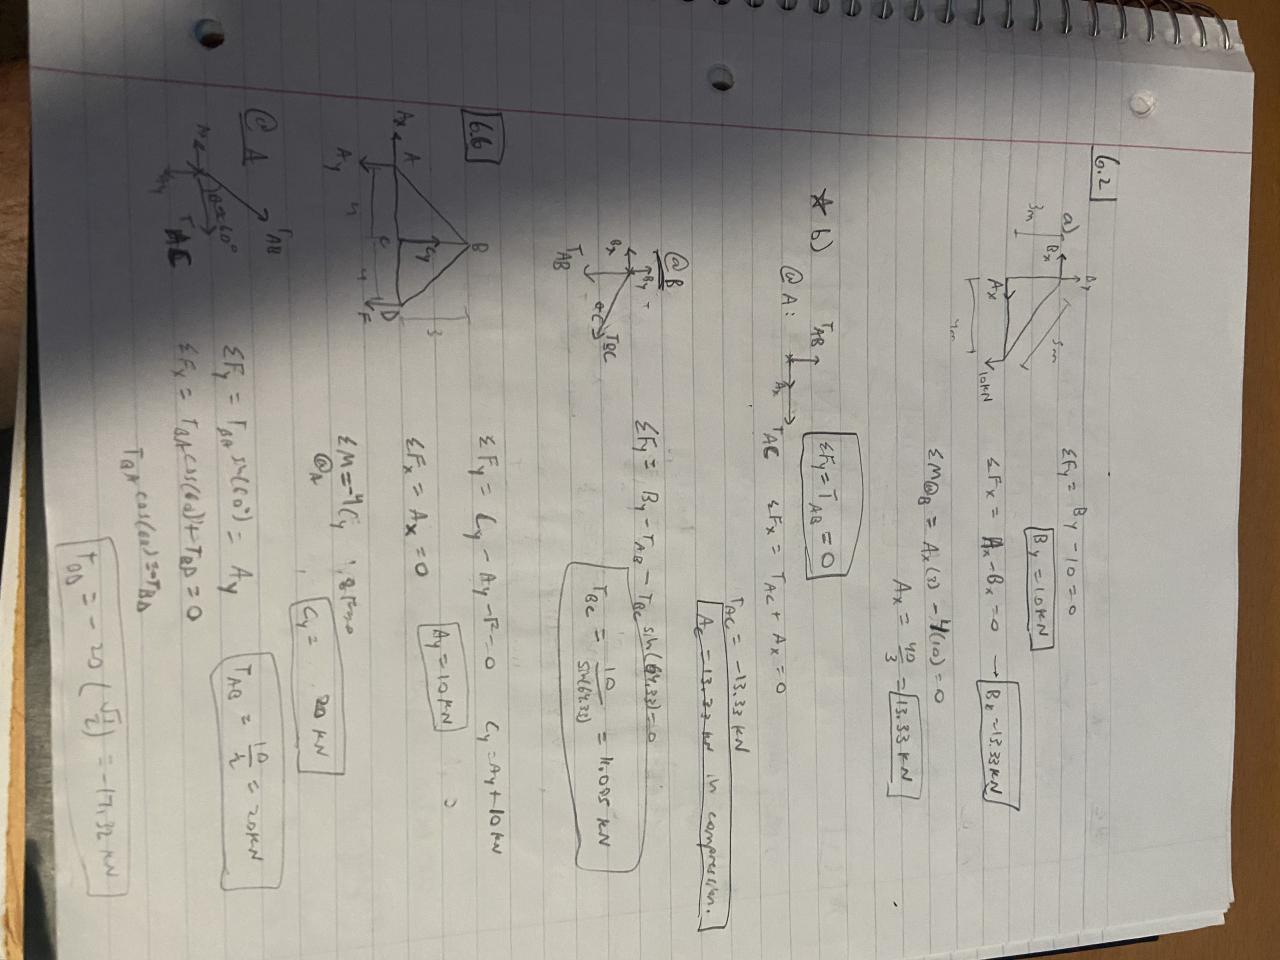 6.2
a)
By
Bx
3m
5m
Ax
4m
10kN
ΣFy = By - 10 = 0
By = 10kN
ΣFx = Ax - Bx = 0 → Bx = 13.33 kN
ΣM@B = Ax(3) - 4(10) = 0
Ax = 40/3 = 13.33 kN
* b)
@ A:
TAB
Ax
TAC
ΣFy = TAB = 0
ΣFx = TAC + Ax = 0
TAC = -13.33 kN
AC = 13.33 kN in compression.
@B
By
Bx
TAB
TBC
ΣFy = By - TAB - TBC sin(64.33) = 0
TBC = 10/sin(64.33) = 11.095 kN
6.6
B
Ax
A
Ay
Cy
C
D
F
4
4
3
ΣFy = Cy - Ay - F = 0
Cy = Ay + 10 kN
ΣFx = Ax = 0
Ay = 10 kN
ΣM = -4Cy
@A
Cy = 20 kN
@ A
TAB
60°
TAC
ΣFy = TBA sin(60°) = Ay
TAB = 10/½ = 20kN
ΣFx = TBA cos(60) + TBD = 0
TBA cos(60) = -TBD
= -20 (√3/2) = -17.32 kN